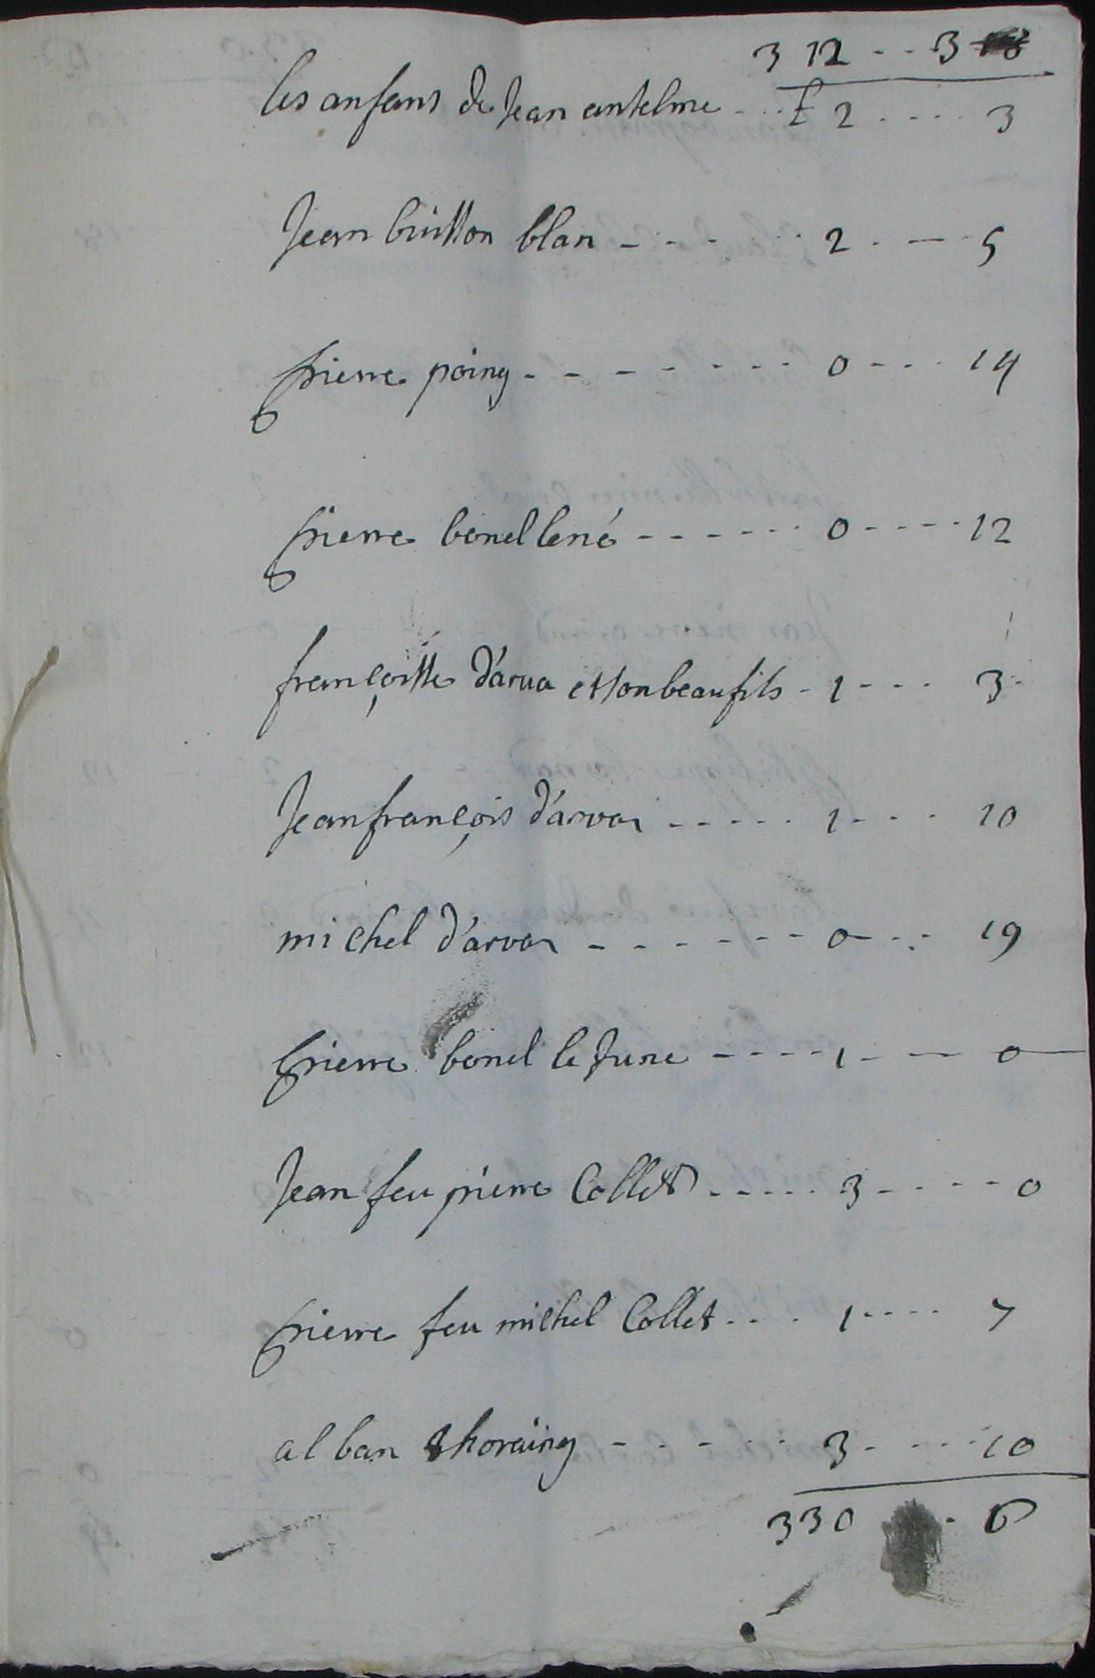 312 -- 3
les anfans de Jean antelme ... £ 2 .... 3
Jean buisson blan - - - - 2 . -- 5
pierre poing - - - - - - - - 0 - - - 14
pierre bonel lené - - - - - - 0 - - - - 12
françoisse d'arva et son beaufils - 1 - - - 3
Jean françois d'arvai - - - - - 1 - - - 10
michel d'arvai - - - - - - - 0 - - - 19
pierre bonel le June - - - - 1 - - - 0
Jean feu pierre Collet - - - - - 3 - - - - - 0
pierre feu michel Collet - - - - 1 - - - - 7
alban thoraing - - - - - - 3 - - - - 10
330 - 6